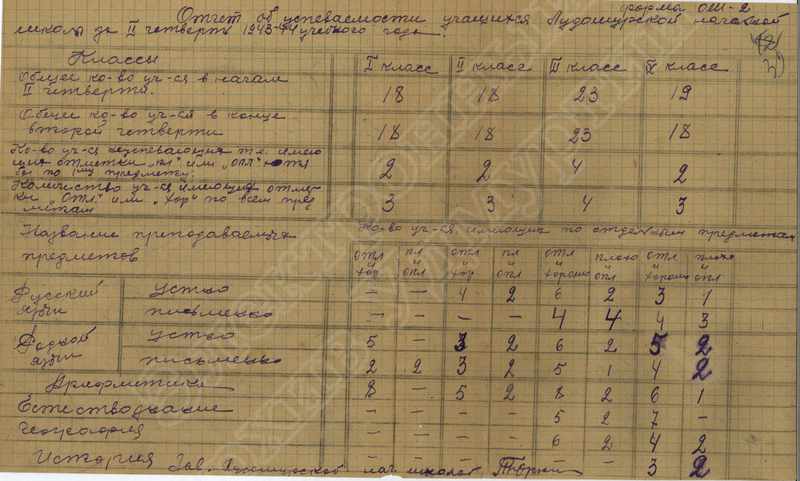 форма ОШ-2
Отчет об успеваемости учащихся Лудошурской начальной
школы за II четверть 1943-44 учебного года.
Классы I класс II класс III класс IV класс
Общее ко-во уч-ся в начале
II четверти. 18 18 23 19
Общее ко-во уч-ся в конце
второй четверти 18 18 23 18
Ко-во уч-ся неуспевающих т.е. имею
щих отметки "пл" или "опл" хотя
бы по 1му предмету. 2 2 4 2
Количество уч-ся имеющих отмет-
ки "Отл" или "Хор" по всем пред
метам 3 3 4 3
Название преподаваемых Ко-во уч-ся, имеющих по отдельным предметам
предметов отл и хор пл и опл отл и хор пл и опл отл и хорошо плохо и опл отл и хорошо плохо и опл
Русский язык устно — — 4 2 6 2 3 1
письменно — — — — 4 4 4 3
Родной язык устно 5 — 3 2 6 2 5 2
письменно 2 2 3 2 5 1 4 2
Арифметика 8 — 5 2 8 2 6 1
Естествознание — — — — 5 2 7 —
География — — — — 6 2 4 2
История — — — — — — 3 2
Зав. нач. школой